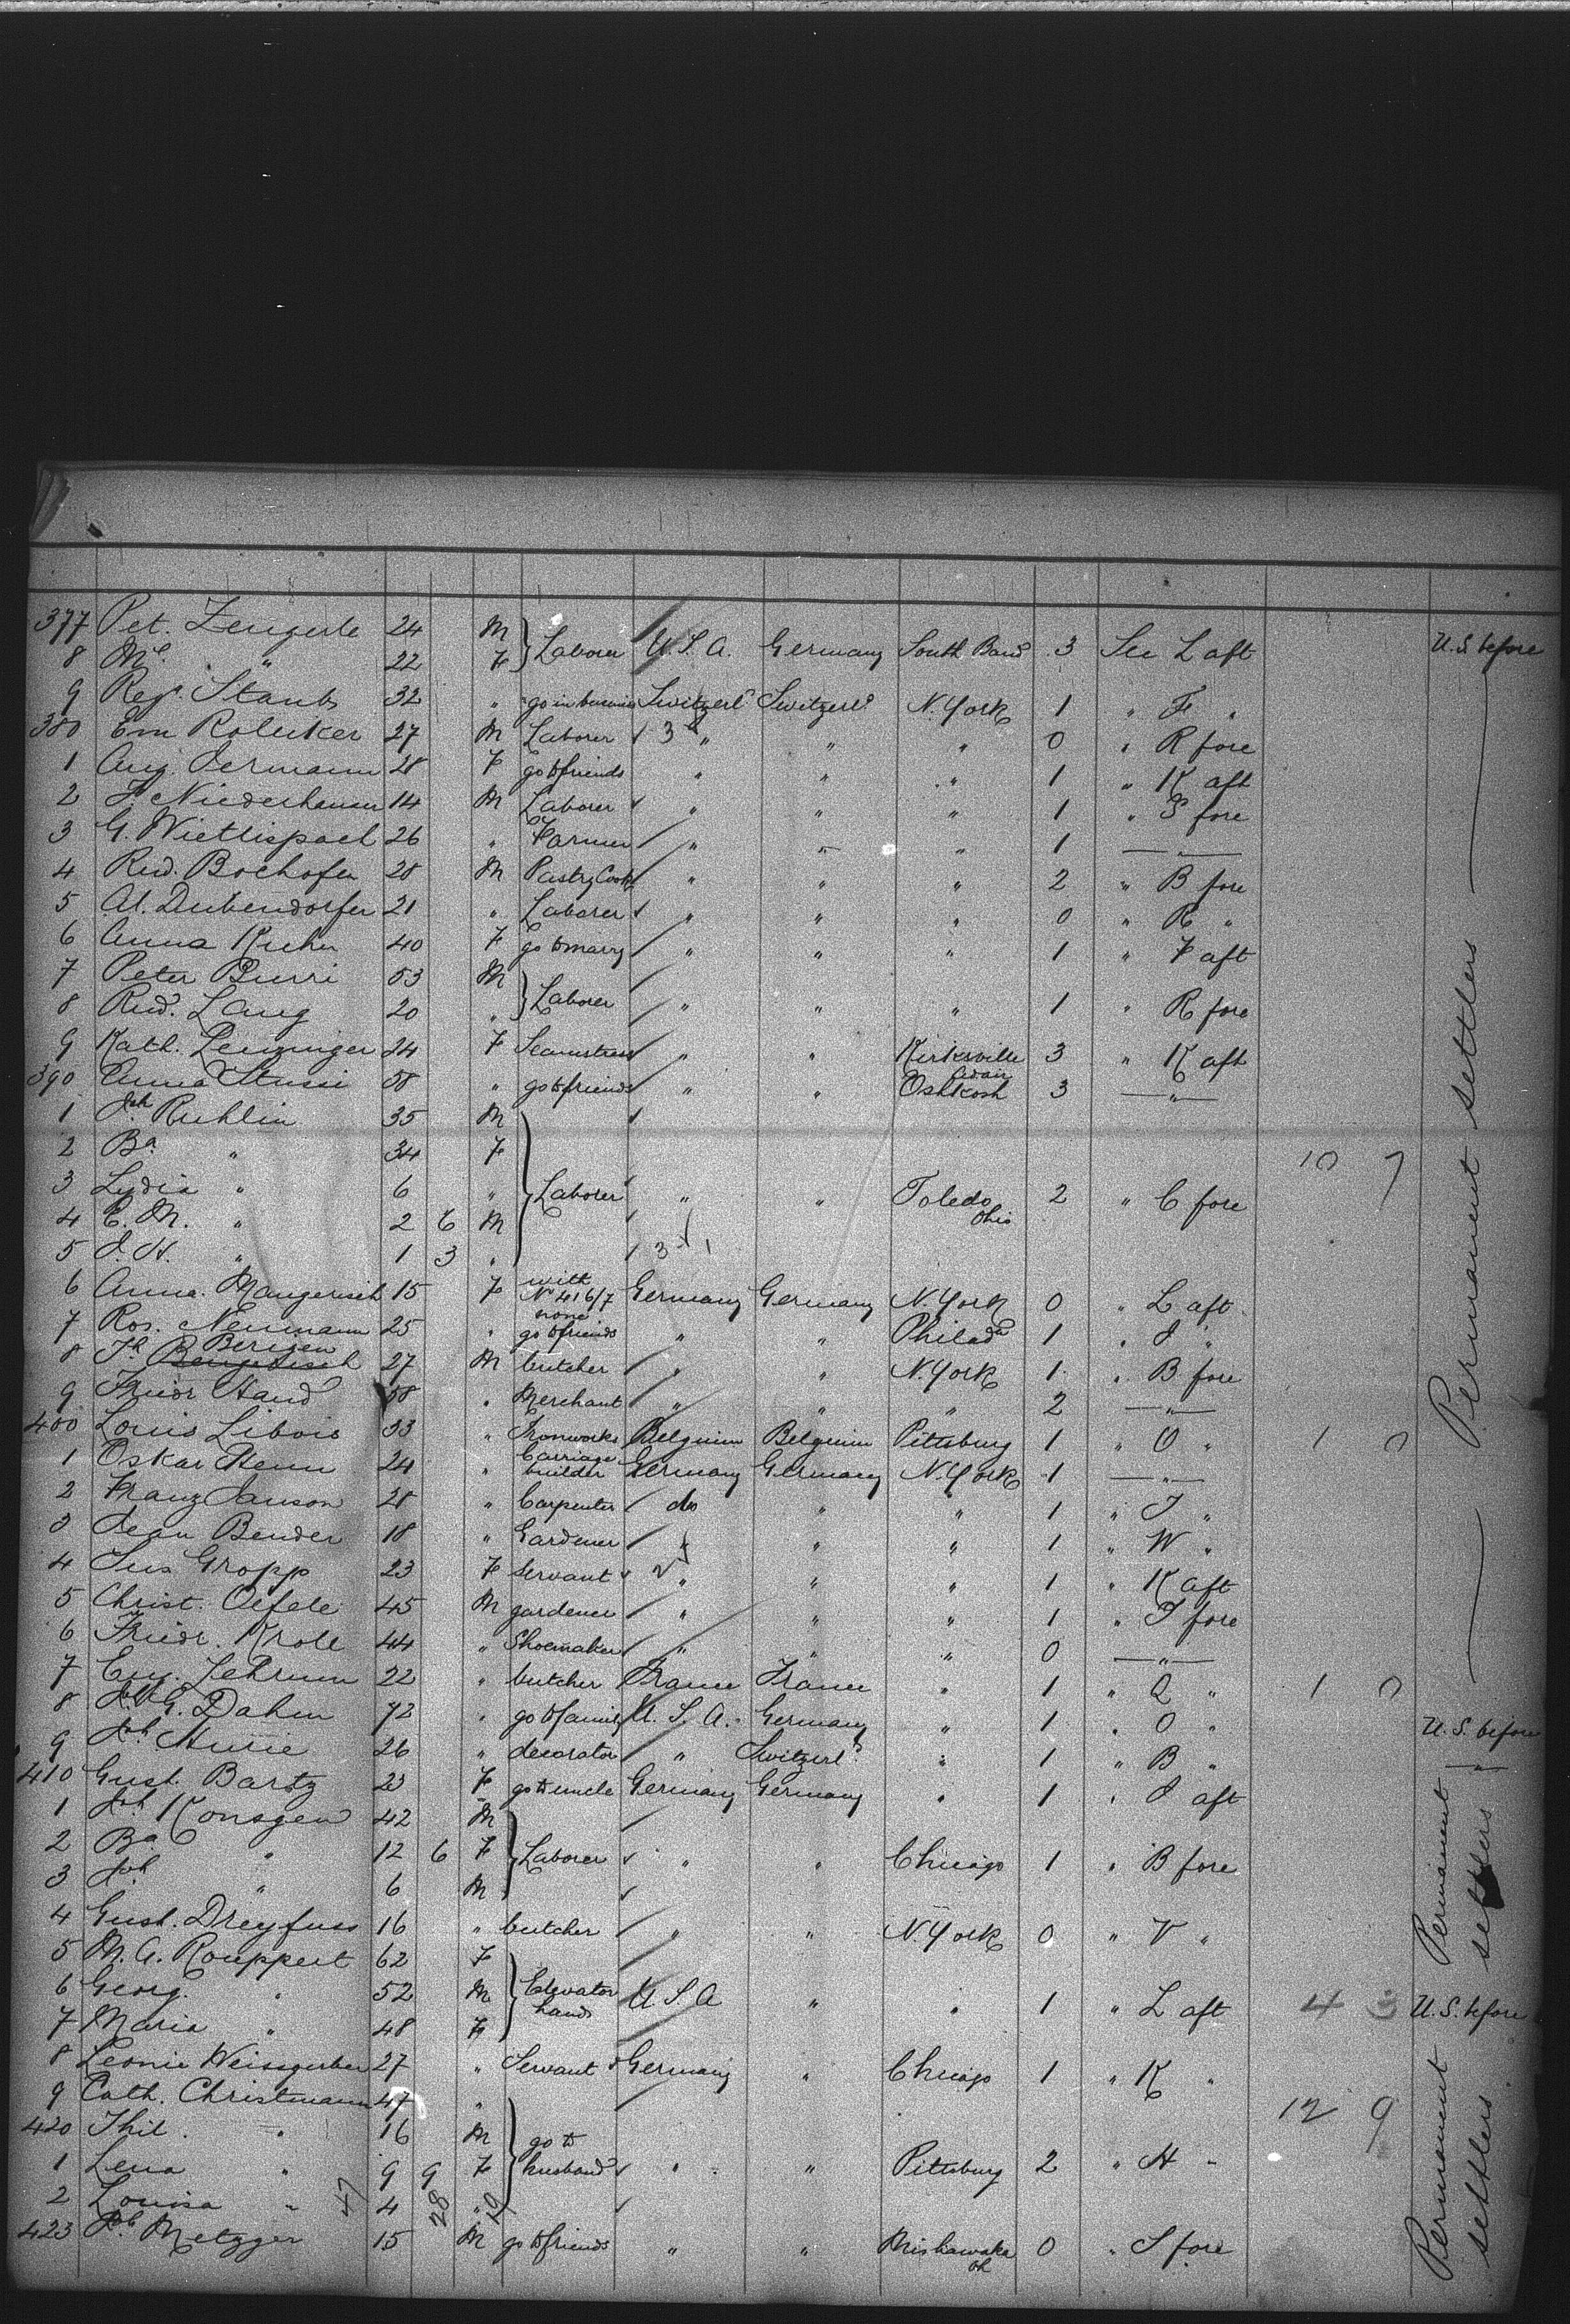 377 Pet. Zengerle 24 M Laborer U.S.A. Germany South Band 3 See L aft U.S. before
8 Me " 22 F
9 Reg. Staub 32 " go in business Switzerld Switzerld N. York 1 " F "
380 Em Rolliker 27 M Laborer " " " 0 " R fore
1 Aug. Jermann 28 F go to friends " " " 1 " K aft
2 F. Niederhauser 14 M Laborer " " " 1 " S fore
3 G. Wietlispach 26 " Farmer " " " 1 "
4 Rud. Bochofen 28 M Pastry Cook " " " 2 " B fore
5 Al. Dubendorfer 21 " Laborer " " " 0 " R "
6 Anna Kuhn 40 F go to marry " " " 1 " F aft
7 Peter Burri 53 M
8 Rud. Lang 20 " Laborer " " " 1 " R fore
9 Kath. Lenzinger 24 F Seamstress " " Kirksville Adair 3 " K aft
390 Anna Stussi 58 " go to friends " " Oshkosh 3 "
1 Joh Ruhlin 35 M
2 Ba " 34 F
3 Lydia " 6 " Laborer " " Toledo Ohio 2 " C fore
4 E. M. " 2 6 M
5 J. H. " 1 3 "
6 Anna Mangerich 15 F with No 416/7 Germany Germany N. York 0 " L aft
7 Ros. Neumann 25 " none go to friends " " Philada 1 " J "
8 Jh Berigen 27 M butcher " " N. York 1 " B fore
9 Friedr Hand 58 " Merchant " " " 2 "
400 Louis Libois 33 " Ironworks Belgium Belgium Pittsburg 1 " O " 1 0
1 Oskar Henn 24 " Carriage builder Germany Germany N. York 1 "
2 Franz Janson 28 " Carpenter do " " 1 " T "
3 Jean Bender 18 " Gardener " " " 1 " W "
4 Sus Gropp 23 F Servant " " " 1 " K aft
5 Christ. Oefele 45 M gardener " " " 1 " T fore
6 Friedr. Kroll 44 " Shoemaker " " " 0 "
7 Eug. Lebrun 22 " butcher France France " 1 " Q " 1 0
8 Joh G. Dahm 72 " go to family U.S.A. Germany " 1 " O " U.S. before
9 26 " decorator " Switzerld " 1 " B "
410 Gust. Bartz 23 F go to uncle Germany Germany " 1 " J aft
1 Joh Konsgen 42 M
2 Ba " 12 6 F Laborer " " Chicago 1 " B fore
3 Joh " 6 M
4 Gust. Dreyfuss 16 " butcher " " N. York 0 " V "
5 M. A. Rouppert 62 F
6 Georg. " 52 M Elevator hands U S A " " 1 " L aft 4 3 U.S. before
7 Maria " 48 F
8 Leonie Weissgerber 27 " Servant Germany " Chicago 1 " K "
9 Cath. Christmann 47 "
420 Phil. " 16 M
1 Lena " 9 9 F go to husband " " Pittsburg 2 " H "
2 Louisa " 4 "
423 Joh Metzger 15 M go to friends " " Mishawaka oh 0 " S fore
10 7
12 9
47 28 19
Permanent settlers
Permanent settlers
Permanent settlers